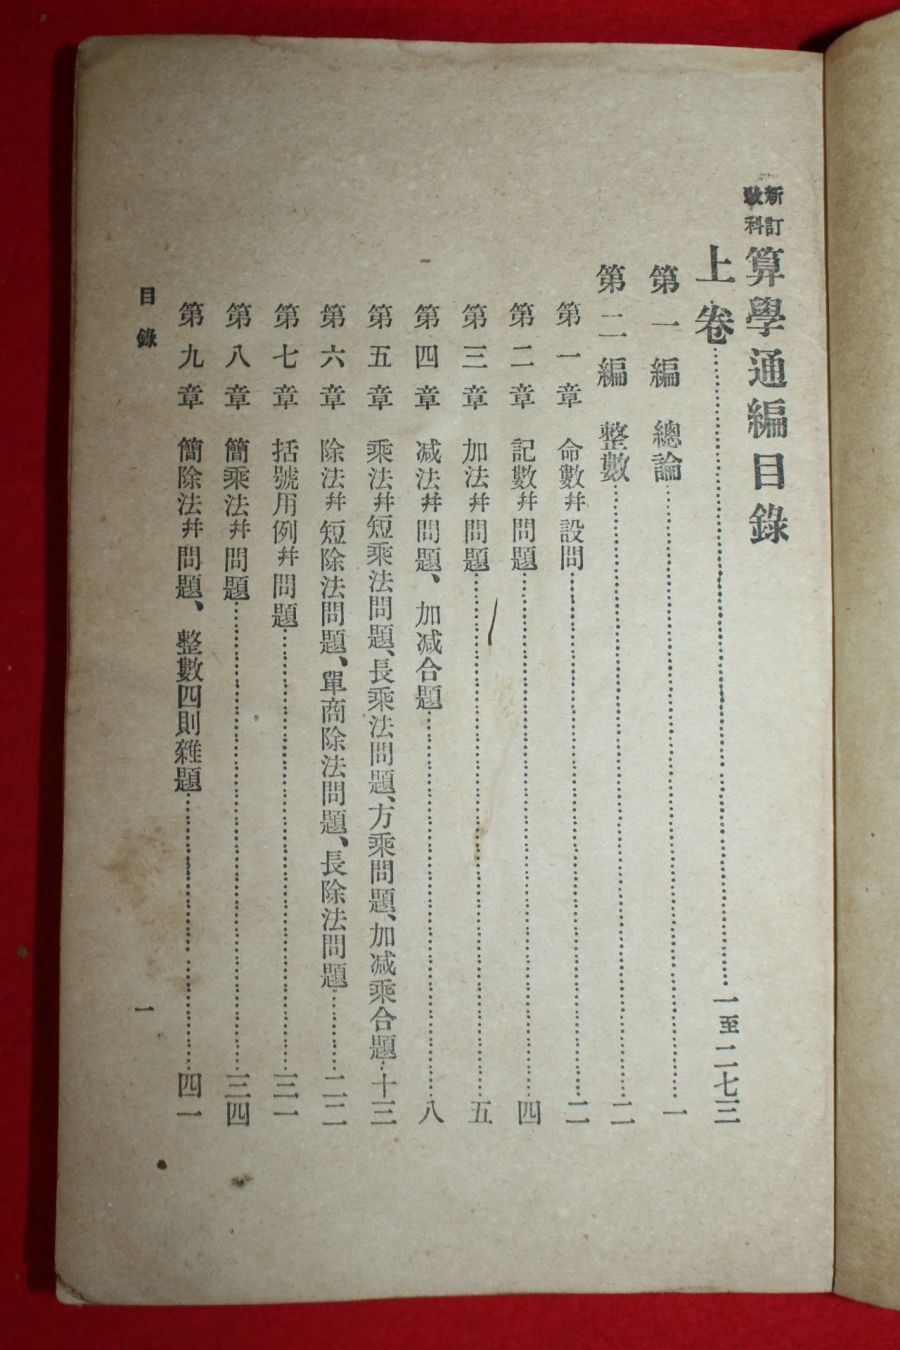 新訂敎科 算學通編目錄
上卷……一至二七三
第一編 總論……一
第二編 整數……二
第一章 命數幷設問……二
第二章 記數幷問題……四
第三章 加法幷問題……五
第四章 減法幷問題、加減合題……八
第五章 乘法幷短乘法問題、長乘法問題、方乘問題、加減乘合題……十三
第六章 除法幷短除法問題、單商除法問題、長除法問題……二二
第七章 括號用例幷問題……三一
第八章 簡乘法幷問題……三四
第九章 簡除法幷問題、整數四則雜題……四一
目錄 一